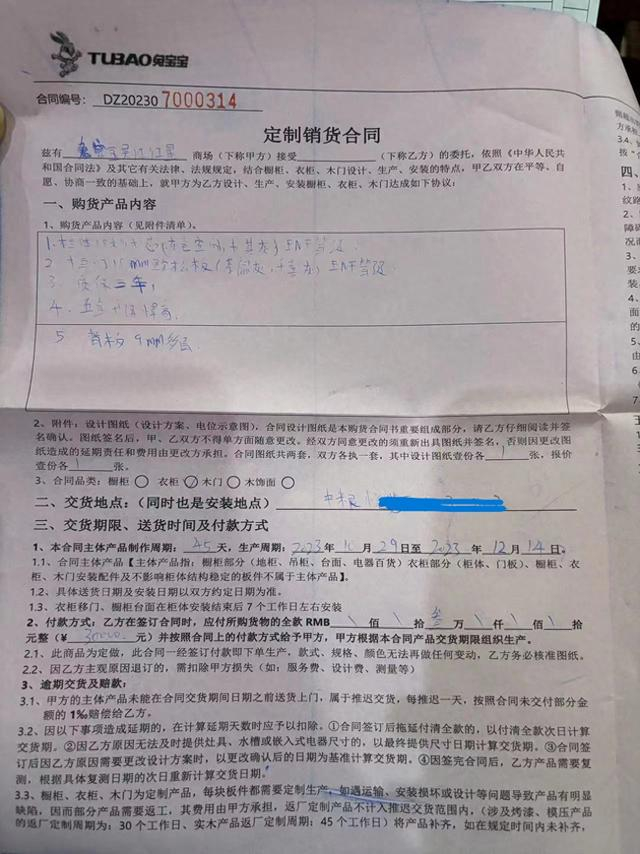 TUBAO兔宝宝
合同编号: DZ20230 7000314
定制销货合同
兹有 商场（下称甲方）接受 （下称乙方）的委托，依照《中华人民共
和国合同法》及其它有关法律、法规规定，结合橱柜、衣柜、木门设计、生产、安装的特点，甲乙双方在平等、自
愿、协商一致的基础上，就甲方为乙方设计、生产、安装橱柜、衣柜、木门达成如下协议：
一、购货产品内容
1、购货产品内容（见附件清单）。
ENF等级
2 18mm ENF等级
3 质保三年
4 五金
5 背板9mm多层
2、附件：设计图纸（设计方案、电位示意图），合同设计图是本购货合同书重要组成部分，请乙方仔细阅读并签
名确认。图纸签名后，甲、乙双方不得单方面随意更改。经双方同意更改的须重新出具图纸并签名，否则因更改图
纸造成的延期责任和费用由更改方承担。合同图纸共两套，双方各执一套，其中设计图纸壹份各 1 张，报价
壹份各 1 张。
3、合同品类：橱柜○ 衣柜○ 木门○ 木饰面○
二、交货地点：（同时也是安装地点） 中粮
三、交货期限、送货时间及付款方式
1、本合同主体产品制作周期：45天，生产周期：2023年10月29日至2023年12月14日。
1.1、合同主体产品【主体产品指：橱柜部分（地柜、吊柜、台面、电器百货）衣柜部分（柜体、门板）、橱柜、衣
柜、木门安装配件及不影响柜体结构稳定的板件不属于主体产品】。
1.2、具体送货日期及安装日期以双方约定日期为准。
1.3、衣柜移门、橱柜台面在柜体安装结束后7个工作日左右安装
2、付款方式：乙方在签订合同时，应付所购货物的全款 RMB \ 佰 \ 拾 叁 万 \ 仟 \ 佰 \ 拾
元整（￥ 30000 元）并按照合同上的付款方式给予甲方，甲方根据本合同产品交货期限组织生产。
2.1、此商品为定做，此合同一经签订付款即下单生产，款式、规格、颜色无法再做任何变动，乙方务必核准图纸。
2.2、因乙方主观原因退订的，需扣除甲方损失（如：服务费、设计费、测量等）
3、逾期交货及赔款：
3.1、甲方的主体产品未能在合同交货期间日期之前送货上门，属于推迟交货，每推迟一天，按照合同未交付部分金
额的1‰赔偿给乙方。
3.2、因以下事项造成延期的，在计算延期天数时应予以扣除。①合同签订后拖延付清全款的，以付清全款次日计算
交货期。②因乙方原因无法及时提供灶具、水槽或嵌入式电器尺寸的，以最终提供尺寸日期计算交货期。③合同签
订后因乙方原因需要更改设计方案时，以更改确认后的日期为基准计算交货期。④因签完合同后，乙方产品需要复
测，根据具体复测日期的次日重新计算交货期。
3.3、橱柜、衣柜、木门为定制产品，每块板件都需要定制生产，如遇运输、安装损坏或设计等问题导致产品有明显
缺陷，因而部分产品需要返工，其费用由甲方承担，返厂定制产品不计入推迟交货范围内，（涉及烤漆、模压产品
的返厂定制周期为：30个工作日、实木产品返厂定制周期：45个工作日）将产品补齐，如在规定时间内未补齐，